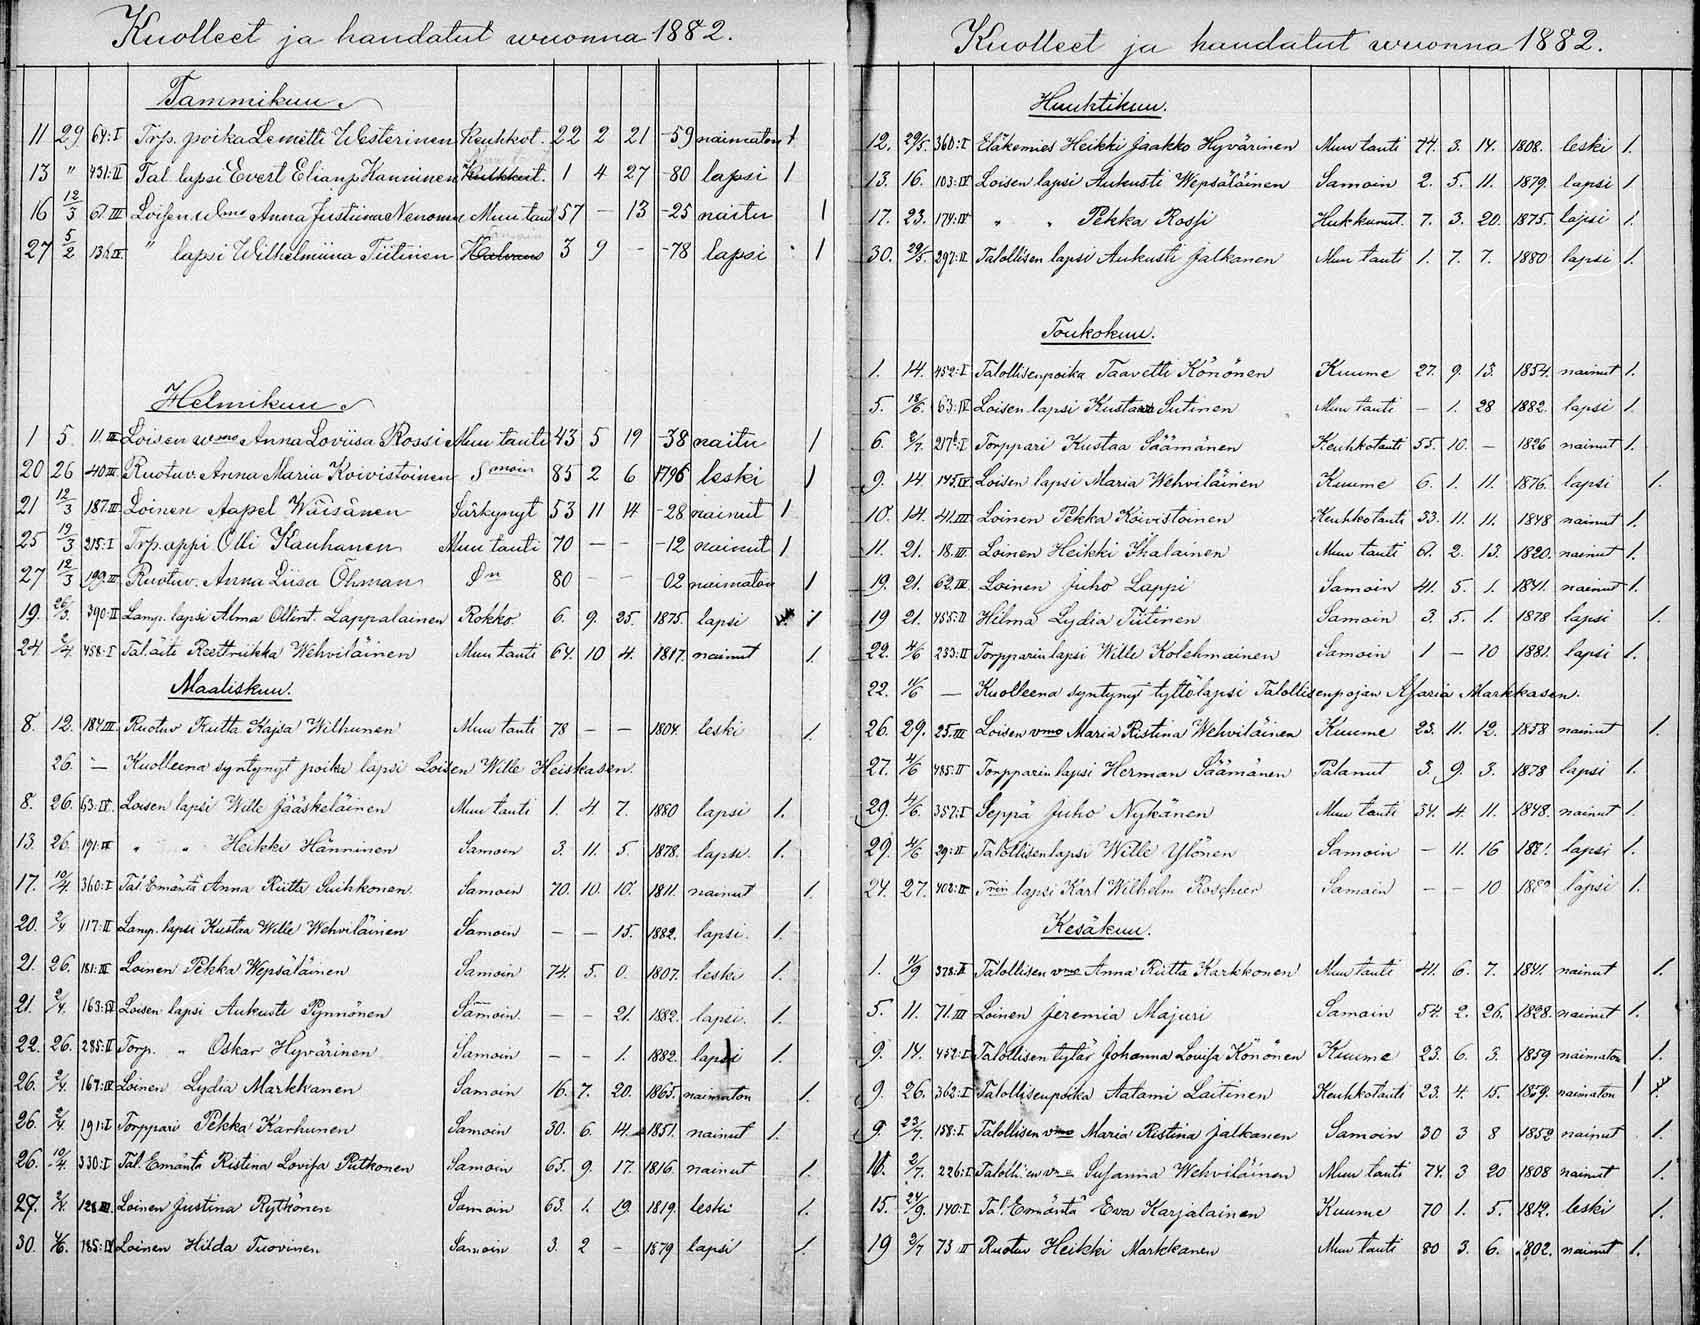 Kuolleet ja haudatut wuonna 1882.
Tammikuu
11 29 64:I Trp. poika Lemetti Westerinen Keuhkot. 22 2 21 -59 naimaton 1
13 " 431:II Tal. lapsi Evert Elianp. Kanninen 1 4 27 -80 lapsi 1
16 12/3 61.III Loisen wmo Anna Justiina Nenonen Muu tau 57 - 13 -25 naitu 1
27 5/2 " lapsi Wilhelmiina Tiitinen 3 9 - -78 lapsi 1
Helmikuu
1 5. 11.III Loisen wmo Anna Loviisa Rossi Muu tauti 43 5 19 -38 naitu 1
20 26 40 III Ruotuv. Anna Maria Koivistoinen Smoin 85 2 6 1796 leski 1
21 12/3 187.III Loinen Aapel Wäisänen Särkynyt 53 11 14 -28 nainut 1
25 19/3 215:I Trp. appi Olli Kauhanen Muu tauti 70 - - -12 nainut 1
27 12/3 199.III Ruotuv. Anna Liisa Öhman 80 - - 02 naimaton 1
19. 26/3. 390:II Lamp. lapsi Alma Ollint. Lappalainen Rokko. 6. 9. 25. 1875. lapsi 1
24. 2/4. 458:I Tal. äiti Reettriikka Wehviläinen Muu tauti 64. 10 4. 1817. nainut 1.
Maaliskuu.
8. 12. 184.III. Ruotuv Riitta Kajsa Wilhunen Muu tauti 78 - - 1804. leski 1.
26. - Kuolleena syntynyt poika lapsi Loisen Wille Heiskasen.
8. 26. 63:IV. Loisen lapsi Wille Jääskeläinen Muu tauti 1. 4 7. 1880 lapsi 1.
13. 26. 191:IV " " Heikki Hänninen Samoin 3. 11. 5. 1878. lapsi. 1.
17. 10/4. 360:I Tal. Emäntä Anna Riitta Suhkonen Samoin 70. 10. 10. 1811. nainut 1.
20. 2/4 117:II Lamp. lapsi Kustaa Wille Wehviläinen Samoin - - 15. 1882. lapsi. 1.
21. 26. 181:III Loinen Pekka Wepsäläinen Samoin 74. 5. 0. 1807. leski 1.
21. 2/4. 163:IV Loisen lapsi Aukusti Pynnönen Samoin. - - 21. 1882. lapsi. 1.
22. 26. 285:II Torp. " Oskar Hyvärinen Samoin - - 1. 1882. lapsi 1.
26. 2/4. 167:IV Loinen Lydia Markkanen Samoin 16. 7. 20. 1865. naimaton 1.
26. 2/4. 191:I Torppari Pekka Karhunen Samoin 30. 6. 14. 1851. nainut 1.
26. 10/4. 330:I Tal. Emäntä Ristina Lovisa Putkonen Samoin 65. 9. 17. 1816. nainut 1.
27. 2/4. 128 III. Loinen Justina Rytkönen Samoin 63. 1. 19. 1819. leski 1.
30. 185:IV Loinen Hilda Tuovinen Samoin 3. 2 - 1879 lapsi 1.
Kuolleet ja haudatut wuonna 1882.
Huuhtikuu.
12. 29/5. 360:I Eläkemies Heikki Jaakko Hyvärinen Muu tauti 74. 3. 14. 1808. leski 1.
13. 16. 103:IV Loisen lapsi Aukusti Wepsäläinen Samoin 2. 5. 11. 1879. lapsi 1.
17. 23. 174:IV " " Pekka Rossi Hukkunut. 7. 3. 20. 1875. lapsi 1.
30. 29/5. 297:II Talollisen lapsi Aukusti Jalkanen Muu tauti 1. 7. 7. 1880 lapsi 1.
Toukokuu.
1. 14. 452:I Talollisenpoika Taavetti Könönen Kuume 27. 9. 13. 1854. nainut 1.
5. 18/6. 63:IV Loisen lapsi Kustaa Sutinen Muu tauti - 1. 28 1882. lapsi 1.
6. 2/7. Torppari Kustaa Säämänen Keuhkotauti 55. 10. - 1826 nainut 1.
9. 14 145.IV Loisen lapsi Maria Wehviläinen Kuume 6. 1. 11. 1876. lapsi 1.
10. 14. 41.III Loinen Pekka Koivistoinen Keuhkotauti 33. 11. 11. 1848 nainut 1.
11. 21. 18.III Loinen Heikki Ikalainen Muu tauti 61. 2. 13. 1820. nainut 1.
19. 21. 62.III. Loinen Juho Lappi Samoin 41. 5. 1. 1841. nainut 1.
19 21. 455:II Hilma Lydia Tiitinen Samoin 3. 5. 1. 1878 lapsi 1.
22. 4/6 233:II Torpparin lapsi Wille Kolehmainen Samoin 1 - 10 1881. lapsi 1.
22. 4/6 - Kuolleena syntynyt tyttölapsi Talollisenpojan Asaria Markkasen.
26. 29. 25.III Loisen vmo Maria Ristina Wehviläinen Kuume 23. 11. 12. 1858 nainut 1.
27. 4/6 485:II Torpparin lapsi Herman Säämänen Palanut 3. 9. 3. 1878 lapsi 1.
29. 4/6. 357:I Seppä Juho Nykänen Muu tauti 34. 4. 11. 1848. nainut 1.
29. 4/6 29:II Talollisen lapsi Wille Ylönen Samoin - 11. 16 1881. lapsi 1.
24. 27. 402:II lapsi Karl Wilhelm Roschier Samoin - - 10 1882 lapsi 1.
Kesäkuu.
1. 378:II Talollisen vmo Anna Riitta Karkkonen Muu tauti 41. 6. 7. 1841. nainut 1.
5. 11. 71.III Loinen Jeremia Majuri Samoin 54. 2. 26. 1828. nainut 1.
9. 14. 452:I Talollisen tytär Johanna Lovisa Könönen Kuume 23. 6. 3. 1859 naimaton 1.
9. 26. 362:I Talollisenpoika Aatami Laitinen Keuhkotauti 23. 4. 15. 1859. naimaton 1
9. 23/7. 158:I. Talollisen vmo Maria Ristina Jalkanen Samoin 30 3 8 1852 nainut 1.
2/7. 226:I Susanna Wehviläinen Muu tauti 74. 3 20 1808 nainut 1.
15. 24/9. 140:I Tal. Emäntä Eva Karjalainen Kuume 70 1. 5. 1812. leski 1.
19 2/7 73 II Ruotuv Heikki Markkanen Muu tauti 80 3. 6. 1802. nainut 1.